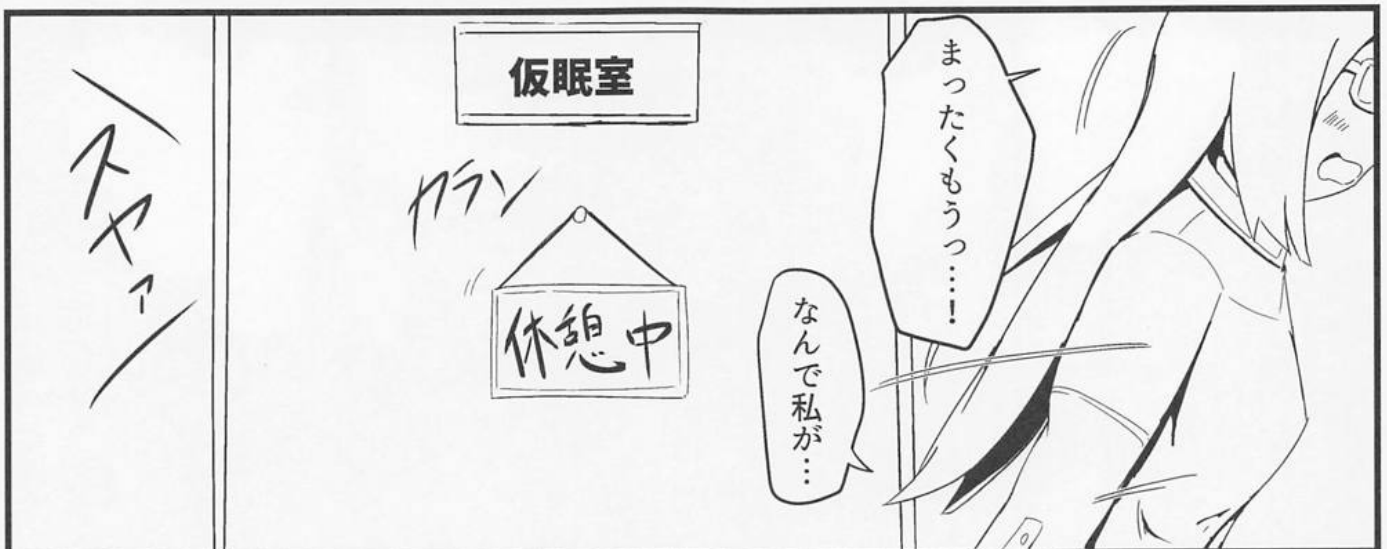 まったくもうっ…!
なんで私が…
仮眠室
カラン
休憩中
スヤァ